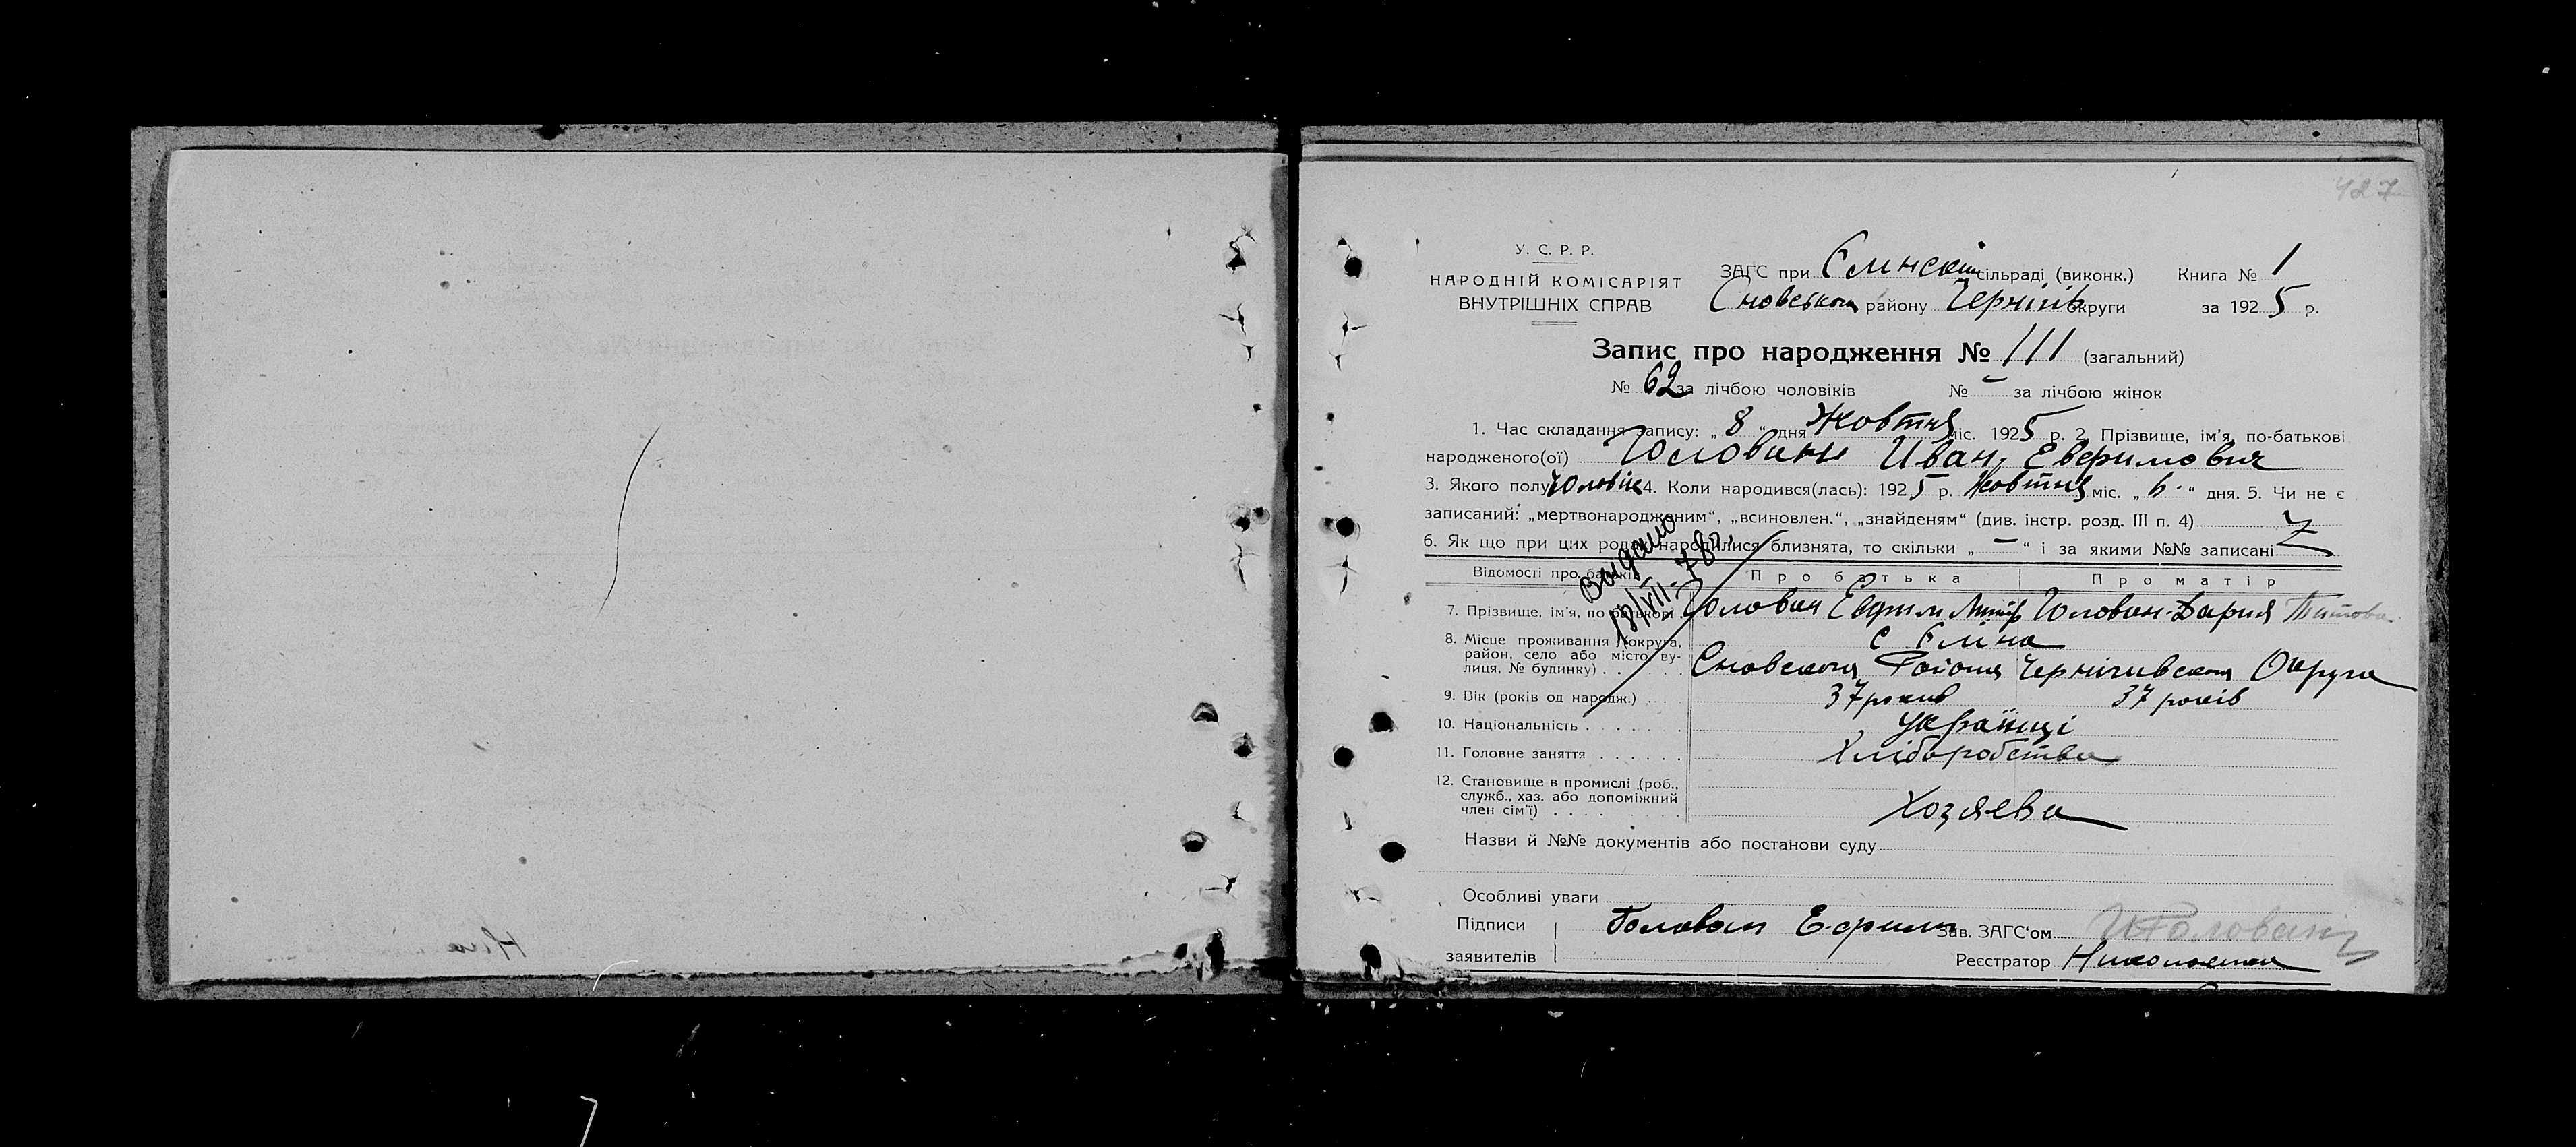 427
У. С. Р. Р.
НАРОДНІЙ КОМІСАРІЯТ
ВНУТРІШНІХ СПРАВ
ЗАГС при Єлинский сільраді (виконк.) Книга № 1
Сновськом району Чернігів округи за 1925 р.
Запис про народження № 111 (загальний)
№ 62 за лічбою чоловіків № - за лічбою жінок
1. Час складання запису: „ 8 “ дня Жовтня міс. 1925 р. 2. Прізвище, ім'я, по-батькові
народженого(ої) Головань Иван, Евфимович
3. Якого полу Чоловік 4. Коли народився(лась): 1925 р. Жовтня міс. „ 6. “ дня. 5. Чи не є
записаний: „мертвонародженим“, „всиновлен.“, „знайденям“ (див. інстр. розд. III п. 4)
6. Як що при цих родах народилися близнята, то скільки „ — “ і за якими №№ записані
Видано
18/VII-78г.
Відомості про батьків Про батька Про матір
7. Прізвище, ім'я, по батькові Голован Евфим Голован Дария Титова
8. Місце проживання (округа, район, село або місто, вулиця, № будинку) с Єліна
Сновскоги Району Чернігивскоги Округа
9. Вік (років од народж.) 37 роков 37 років
10. Національність Українці
11. Головне заняття Хліборобство
12. Становище в промислі (роб., служб., хаз. або допоміжний член сім'ї) Хозяева
Назви й №№ документів або постанови суду
Особливі уваги
Підписи Голован Ефим Зав. ЗАГС'ом Головань
заявителів Реєстратор